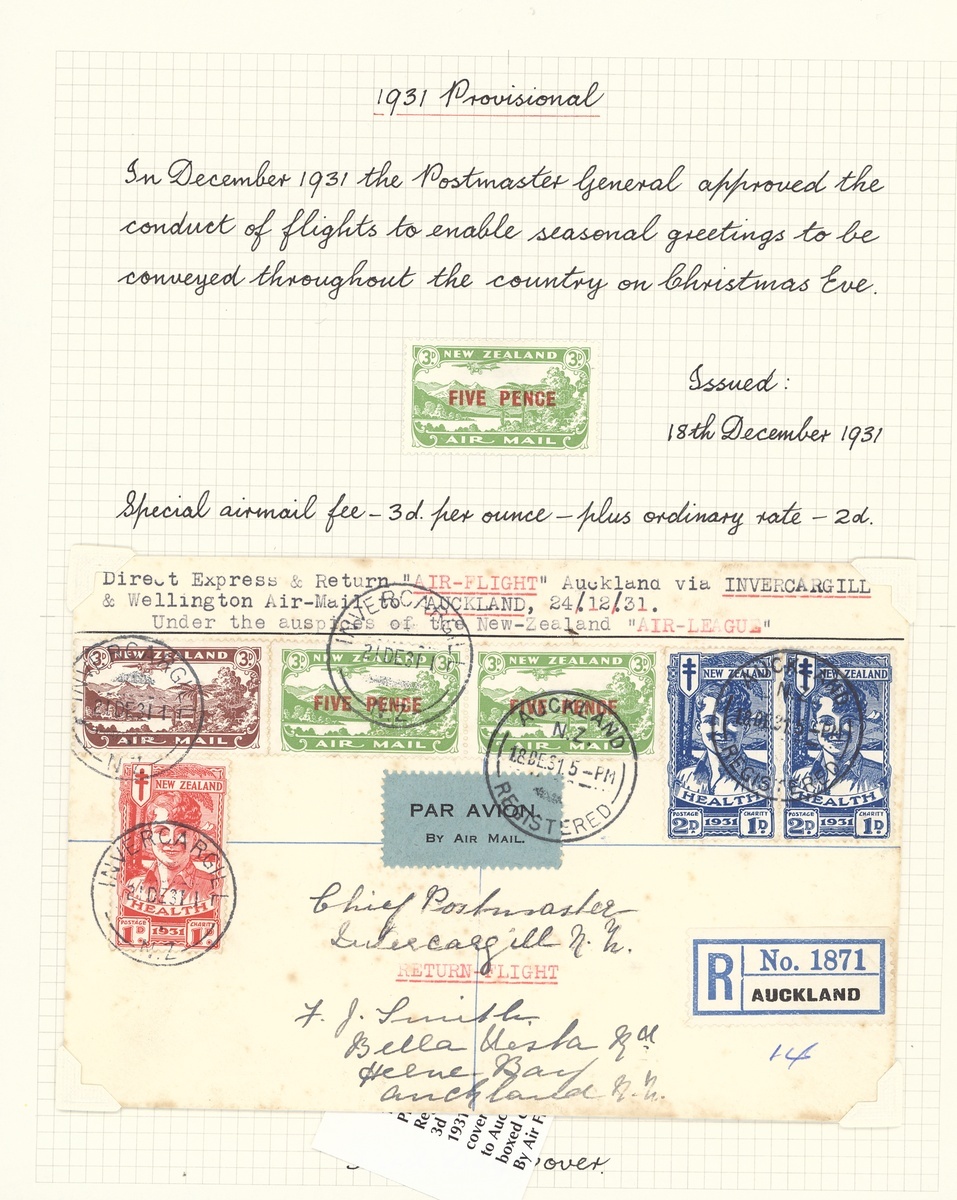 1931 Provisional
In December 1931 the Postmaster General approved the
conduct of flights to enable seasonal greetings to be
conveyed throughout the country on Christmas Eve.
3D NEW ZEALAND 3D
FIVE PENCE
AIR MAIL
Issued:
18th December 1931
Special airmail fee – 3d. per ounce – plus ordinary rate – 2d.
Direct Express & Return "AIR-FLIGHT" Auckland via INVERCARGILL
& Wellington Air-Mail to AUCKLAND, 24/12/31.
Under the auspices of the New-Zealand "AIR-LEAGUE"
INVERCARGILL
N.Z
3D NEW ZEALAND 3D
AIR MAIL
INVERCARGILL
N.Z
3D NEW ZEALAND
FIVE PENCE
AIR MAIL
NEW ZEALAND 3D
FIVE PENCE
AIR MAIL
AUCKLAND
N.Z
18DE31 5-PM
REGISTERED
AUCKLAND
N.Z
REGISTERED
HEALTH
POSTAGE CHARITY
2D 1931 1D
HEALTH
POSTAGE CHARITY
2D 1931 1D
NEW ZEALAND
INVERCARGILL
HEALTH
POSTAGE CHARITY
1D 1931 1D
N.Z
PAR AVION
BY AIR MAIL.
Chief Postmaster
Invercargill N.Z.
RETURN-FLIGHT
F. J. Smith
Bella Vista Rd
Herne Bay
Auckland N.Z.
R No. 1871
AUCKLAND
14
Re
3d
1931
cover
to Auc
boxed
By Air F
cover.